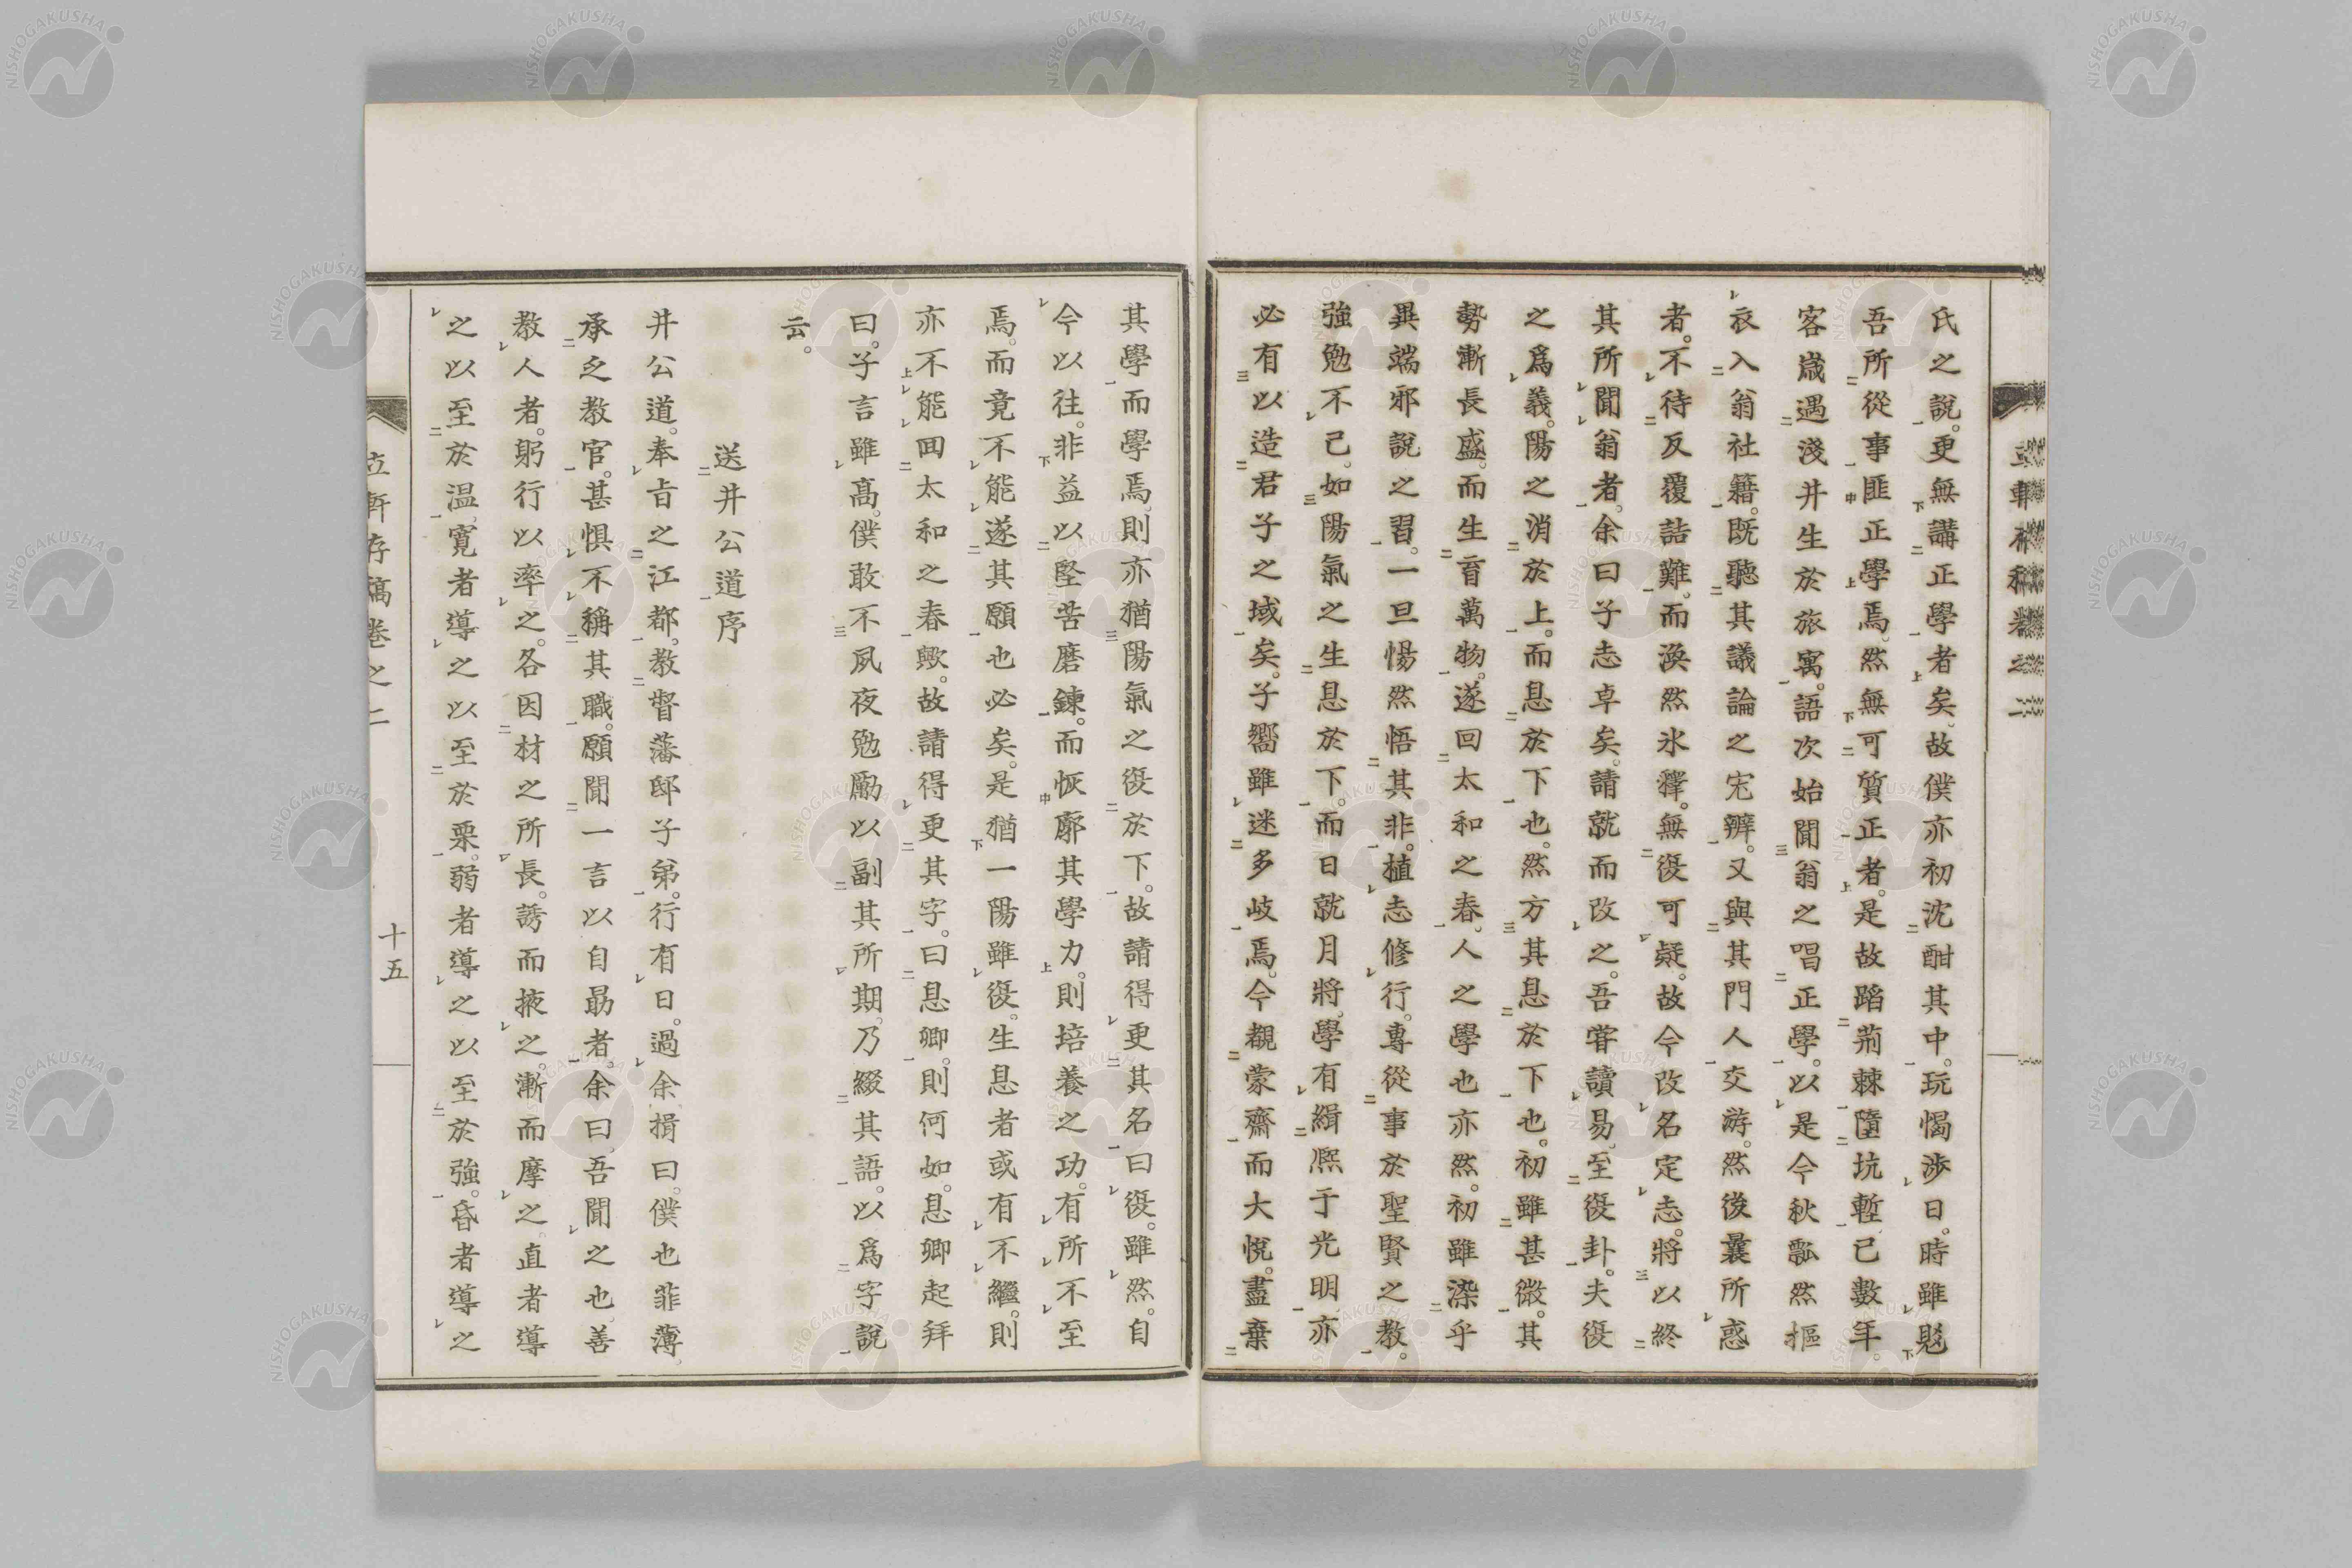 氏之說。更無講正學者矣。故僕亦初沈酣其中。玩愒涉日。時雖覺
吾所從事匪正學焉。然無可質正者。是故蹈荊棘墮坑塹。已數年。
客歲遇淺井生於旅寓。語次始聞翁之唱正學。以是今秋飄然摳
衣入翁社籍。既聽其議論之宏辨。又與其門人交游。然後曩所惑
者。不待反覆詰難。而渙然氷釋。無復可疑。故今改名定志。將以終
其所聞翁者。余曰子志卓矣。請就而改之。吾甞讀易。至復卦。夫復
之爲義。陽之消於上。而息於下也。然方其息於下也。初雖甚微。其
勢漸長盛。而生育萬物。遂回太和之春。人之學也亦然。初雖染乎
異端邪說之習。一旦惕然悟其非。植志修行。專從事於聖賢之教。
強勉不已。如陽氣之生息於下。而日就月將。學有緝熈于光明。亦
必有以造君子之域矣。子嚮雖迷多岐焉。今覯蒙齋而大悅。盡棄
其學而學焉。則亦猶陽氣之復於下。故請得更其名曰復。雖然。自
今以往。非益以堅苦磨鍊。而恢廓其學力。則培養之功。有所不至
焉。而竟不能遂其願也必矣。是猶一陽雖復。生息者或有不繼。則
亦不能回太和之春歟。故請得更其字。曰息卿。則何如。息卿起拜
曰。子言雖高。僕敢不夙夜勉勵以副其所期。乃綴其語。以爲字說
云。
送井公道序
井公道。奉旨之江都。教督藩邸子弟。行有日。過余揖曰。僕也菲薄。
承乏教官。甚惧不稱其職。願聞一言以自勗者。余曰。吾聞之也。善
教人者。躬行以率之。各因材之所長。誘而掖之。漸而摩之。直者導
之以至於温。寬者導之以至於栗。弱者導之以至於強。昏者導之
立軒存稿卷之二
十五